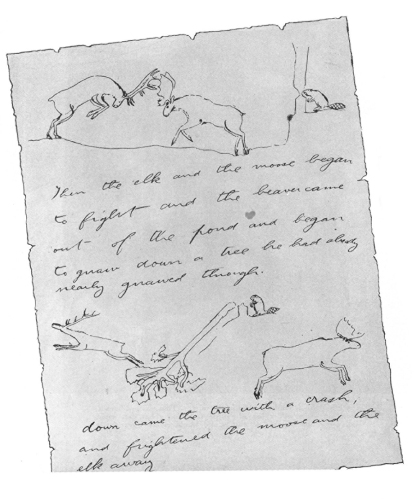 Then the elk and the moose began
to fight and the beaver came
out of the pond and began
to gnaw down a tree he had already
nearly gnawed through.
down came the tree with a crash,
and frightened the moose and the
elk away